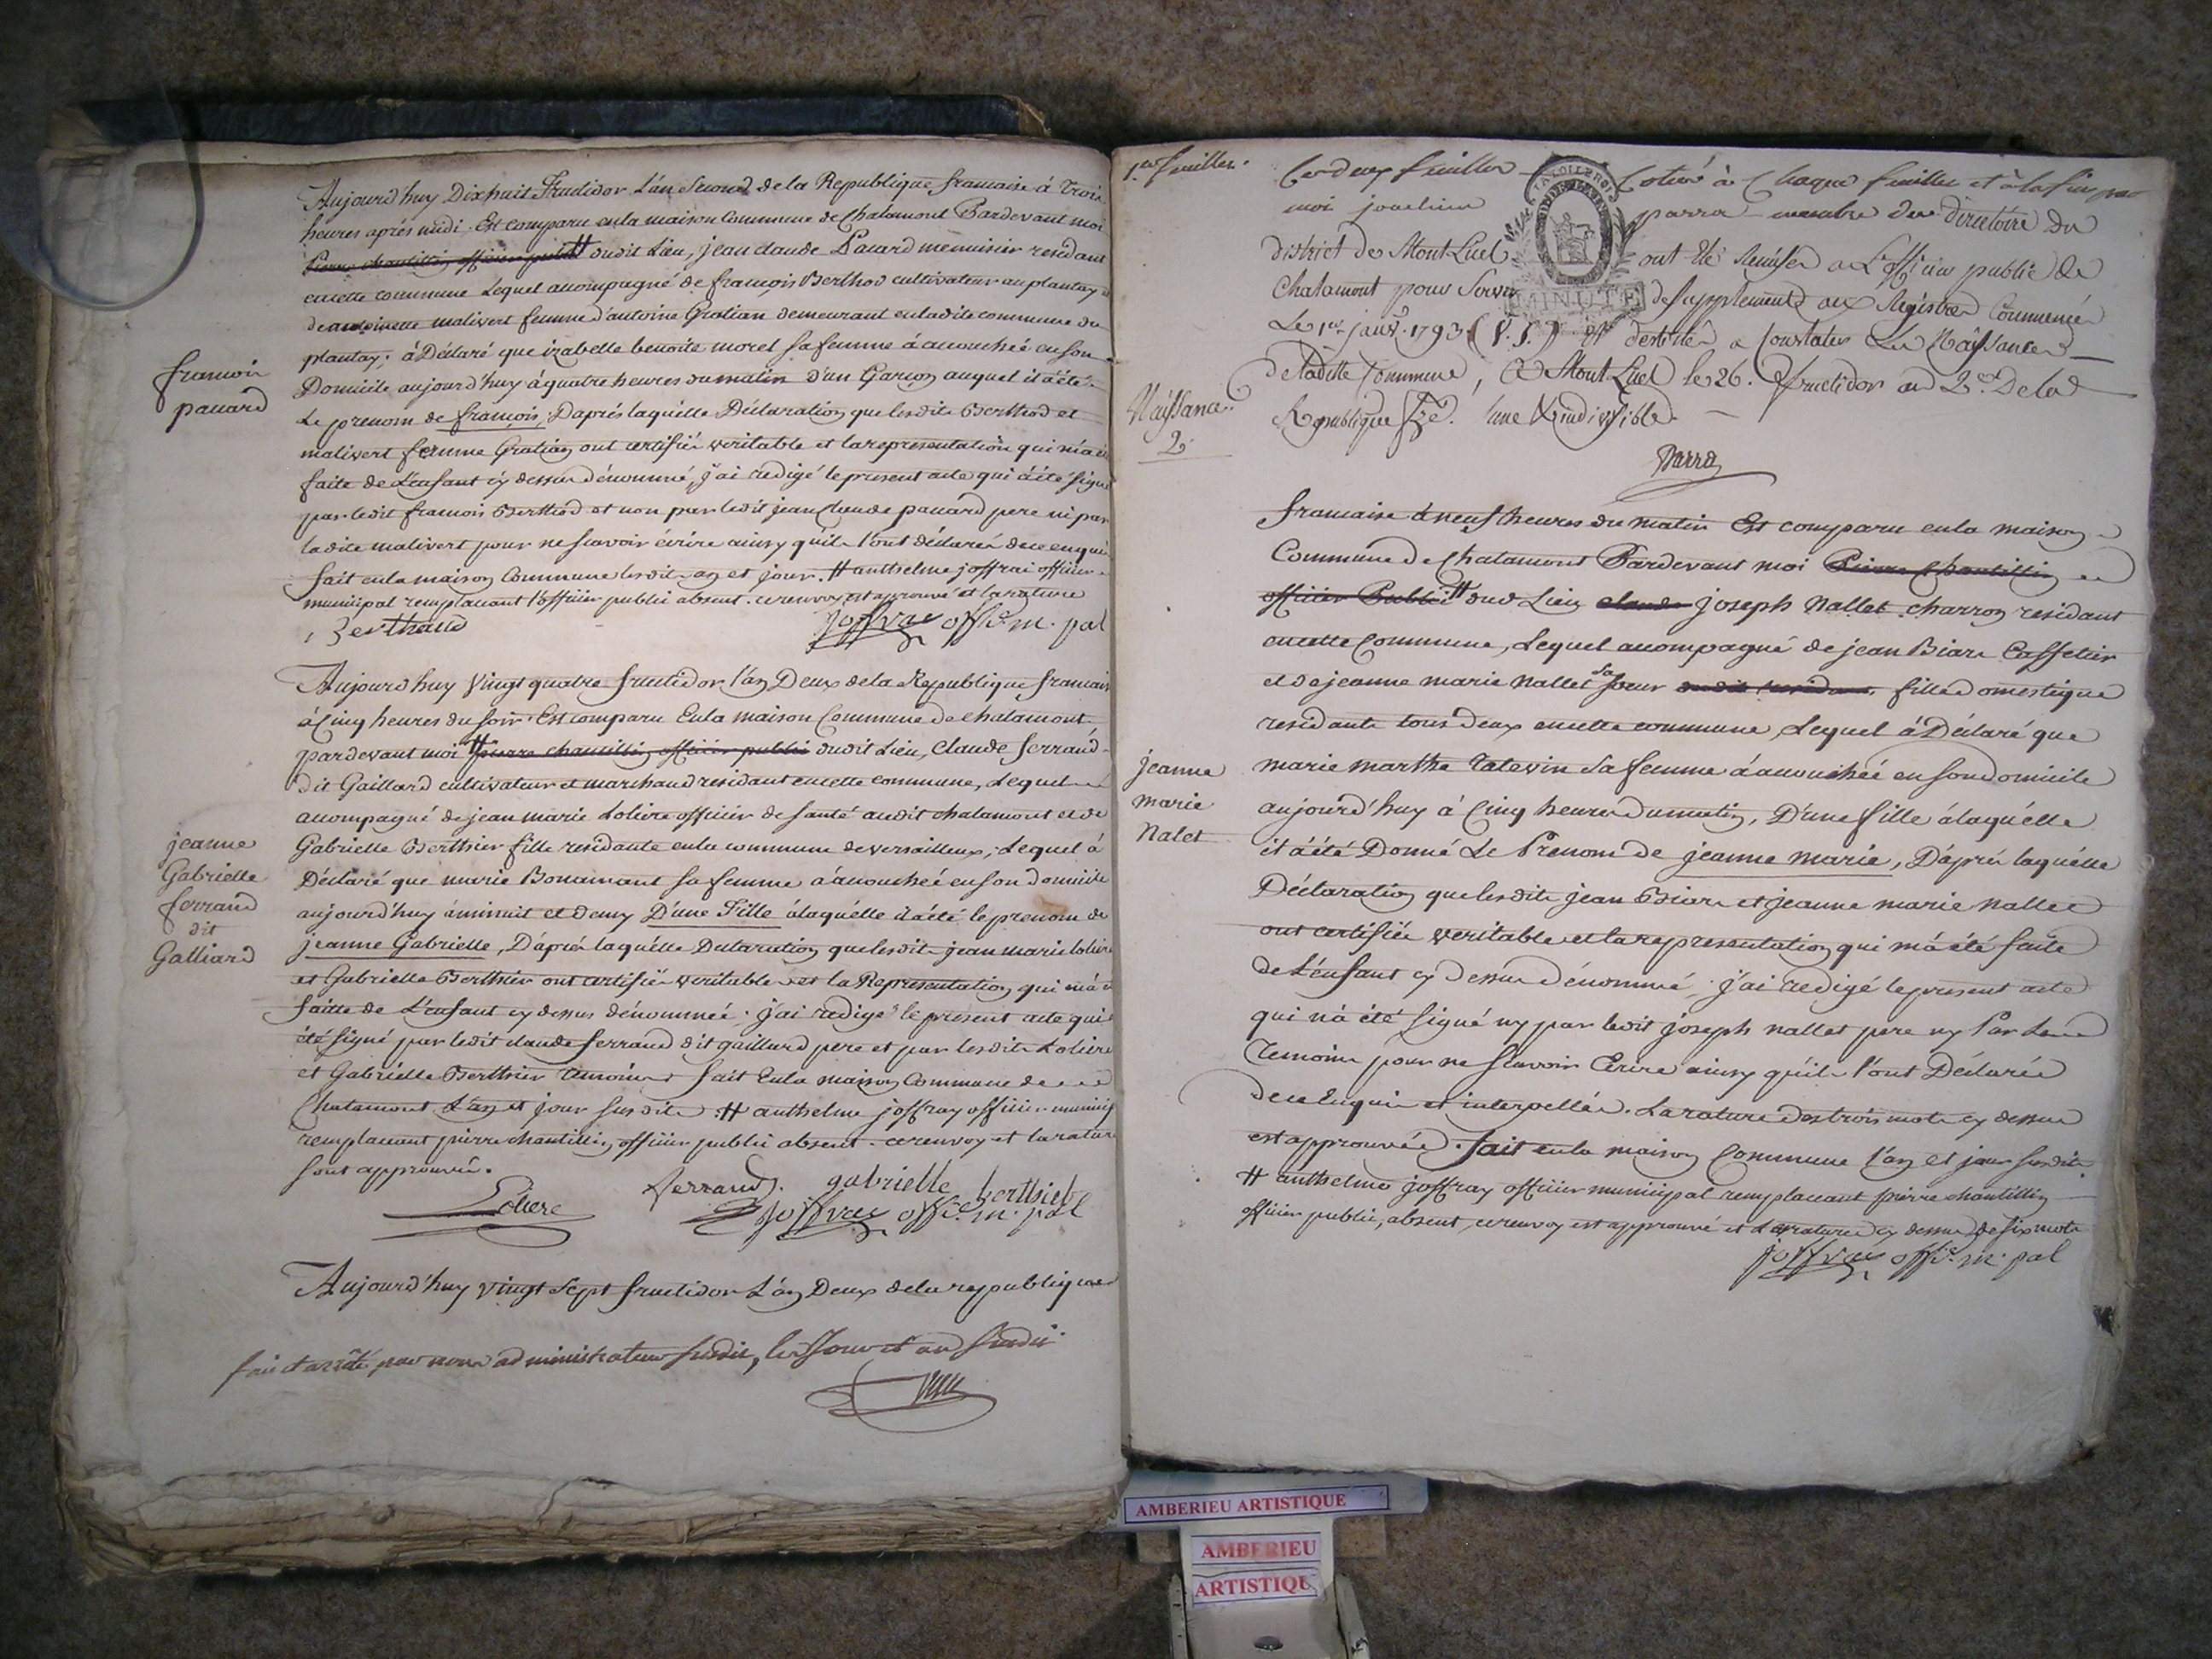 Aujourd'huy Dixhuit Fructidor L'an Second de la Republique francaise à Trois
heures aprés midi. Est comparu en la maison Commune de Chalamont Pardevant moi
Pierre chantillin officier public # dudit Lieu, jean claude Pacard menuisier residant
en cette commune Lequel accompagné de françois Berthod cultivateur au plantay et
de antoinette malivert femme d'antoine Gratian demeurant en ladite commune du
plantay; à Déclaré que izabelle benoite morel sa femme à accouchée en son
françois
pacard
Domicile aujourd'huy à quatre heures du matin d'un Garçon auquel il à été
Le prenom de françois, Daprés laquélle Déclaration que lesdits Berthod et
malivert femme Gratian ont certifié veritable et la representation qui m'a été
faite de L'enfant cy dessus dénommé, j'ai redigé le present acte qui à été signé
par ledit francois Berthod et non par ledit jean Claude pacard pere ni par
ladite malivert pour ne scavoir écrire ainsy quils l'ont déclarés de ce enquis
fait en la maison Commune lesdits an et jour. # anthelme joffrai officier
municipal remplacant l'officier public absent. ce renvoy est aprouvé et la rature
Berthaud
joffray offic. m. pal
Aujourd'huy Vingt quatre fructidor l'an Deux de la Republique francaise
à Cinq heures du soir Est comparu En la maison Commune de chalamont
pardevant moi # pierre chantillin officier public dudit Lieu, Claude ferrand
dit Gaillard cultivateur et marchand residant en cette commune, Lequel
accompagné de jean marie Loliere officier de santé audit chalamont et de
jeanne
Gabrielle
ferrand
dit
Galliard
Gabrielle Berthier fille residante en la commune de versailleux, Lequel à
Déclaré que marie Bonamant sa femme à accouchée en son domicile
aujourd'huy à minuit et demy D'une Fille à laquélle il à été le prenom de
jeanne Gabrielle, D'aprés laquélle Declaration que lesdits jean marie loliere
et Gabrielle Berthier ont certifiée veritable et la Representation qui m'à été
faitte de L'enfant cy dessus dénommée. j'ai redigé le present acte qui à
été signé par ledit claude ferrand dit gaillard pere et par lesdits Loliere
et Gabrielle Berthier temoins fait En la maison Commune de
Chalamont L'an et jour susdits. # anthelme joffray officier municipal
remplacant pierre chantillin officier public absent. ce renvoy et la rature
sont approuvés.
ferrand. gabrielle berthier
Loliere
joffray offic. m. pal
Aujourd'huy vingt sept fructidor L'an Deux de la republique
fait et arrêté par nous administrateur susdit, les jour et an susdit
1er feuillet.
Ces deux feuilles Cotées à Chaque feuillet et à la fin par
moi joachim parra membre du directoire du
district de Montluel ont été Remises a L'officier public de
Chalamont pour Servir de Supplement aux Registres Commencés
MINUTE
Le 1er janvr. 1793 (V. S.) et destinés a Constater Les Naissances
de laditte Commune, A Montluel le 26. fructidor an 2e. De la
Naissance
2
Republique fse. Une & indivisible.
Parra
francaise à neuf heures du matin Est comparu en la maison
Commune de Chalamont Pardevant moi Pierre Chantillin
officier Public # dud Lieu claude joseph Nallet charron residant
en cette Commune, Lequel accompagné de jean Biare Caffetier
et de jeanne marie Nallet sa soeur fille domestique
residante tous deux en cette commune, Lequel à Déclaré que
jeanne
marie
Nalet
marie marthe Tatevin sa femme à accouchée en son domicile
aujourd'huy à Cinq heures du matin, D'une fille à laquélle
il à été Donné Le Prenom de jeanne marie, D'aprés laquélle
Déclaration que lesdits jean Biare et jeanne marie Nallet
ont certifiée veritable et la representation qui m'à été faite
de L'enfant cy dessus dénommé, j'ai redigé le present acte
qui n'à été signé ny par ledit joseph nallet pere ny Par Les
Temoins pour ne scavoir Ecrire ainsy qu'ils l'ont Déclarés
de ce Enquis et interpellés. La rature des trois mots cy dessus
est approuvée. fait en la maison Commune l'an et jour susdits
# anthelme joffray officier municipal remplacant pierre chantillin
officier public, absent, ce renvoy est approuvé et La rature cy dessus de six mots
joffray offic. m. pal
AMBERIEU ARTISTIQUE
AMBERIEU
ARTISTIQUE